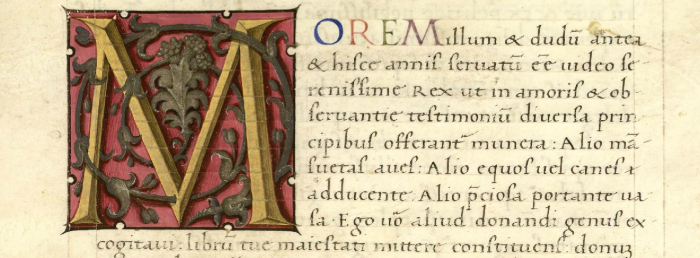 MOREM illum & dudū antea
& hisce annis seruatū eē uideo se-
renissime Rex ut in amoris & ob-
seruantie testimoniū diuersa prin-
cipibus offerant munera: Alio mā-
suetas aues: Alio equos uel canes
adducente. Alio p̄ciosa portante ua-
sa. Ego uō aliud donandi genus ex
cogitaui: librū tue maiestati mittere constituens: donuꝫ